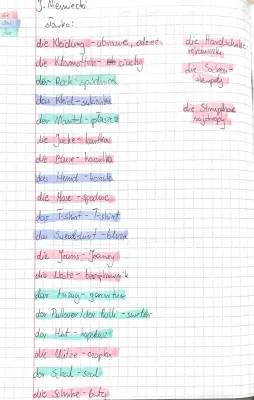 J. Niemiecki
słówka:
die
das
der
die Kleidung - ubranie, odzież
die Klamotten - ciuchy
der Rock - spódnica
das Kleid - sukienka
der Mantel - płaszcz
die Jacke - kurtka
die Bluse - koszulka
das Hemd - koszula
die Hose - spodnie
das T-shirt - T-shirt
das Sweatshirt - bluza
die Jeans - Jeansy
die Weste - bezrękawnik
der Anzug - garnitur
der Pullover / der Pulli - sweter
der Hut - kapelusz
die Mütze - czapka
der Schal - szal
die Schuhe - buty
die Handschuhe
rękawiczki
die Socken -
skarpety
die Strumpfhose
rajstopy